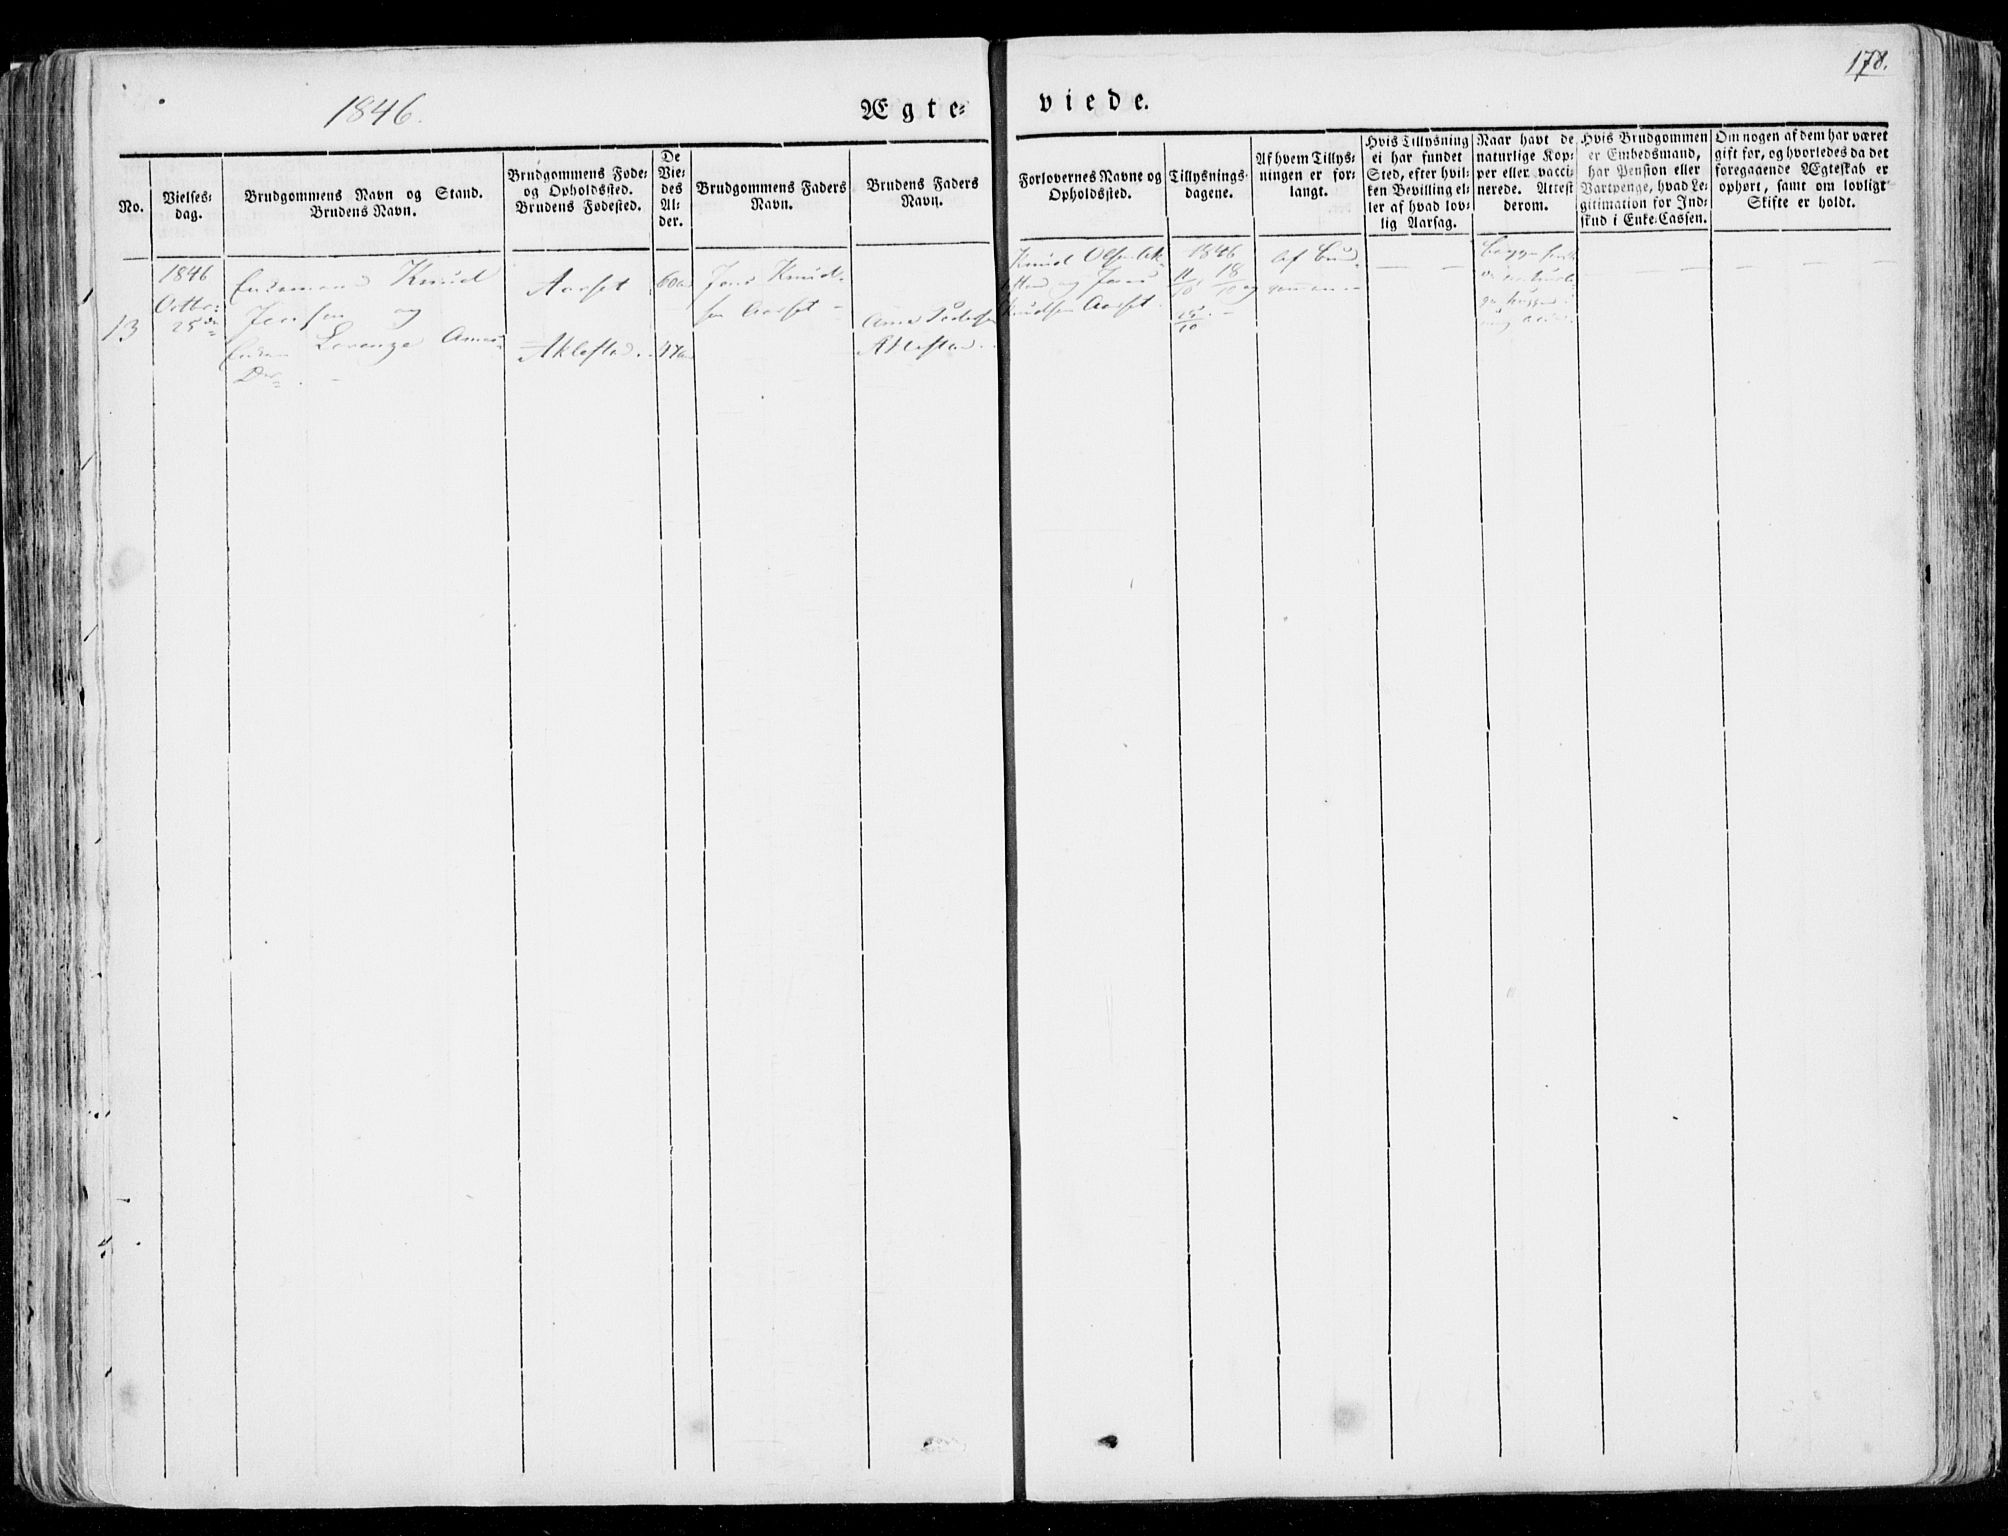 178.
1846.
Ægte-
viede.
No.
Vielses-
dag.
Brudgommens Navn og Stand.
Brudens Navn.
Brudgommens Føde-
og Opholdssted.
Brudens Fødested.
De
Vie-
des
Al-
der.
Brudgommens Faders
Navn.
Brudens Faders
Navn.
Forlovernes Navne og
Opholdssted.
Tillysnings-
dagene.
Af hvem Tillys-
ningen er for-
langt.
Hvis Tillysning
ei har fundet
Sted, efter hvil-
ken Bevilling el-
ler af hvad lov-
lig Aarsag.
Naar havt de
naturlige Kop-
per eller vacci-
nerede. Attest
derom.
Hvis Brudgommen
er Embedsmand,
har Pension eller
Vartpenge, hvad Le-
gitimation for Ind-
skud i Enke-Cassen.
Om nogen af dem har været
gift før, og hvorledes da det
foregaaende Ægteskab er
ophørt, samt om lovligt
Skifte er holdt.
13
1846
Octbr
25de
Enkemand Knud
Jensen og
Lorenze
Aarset
Aklestad
60 aar
47 aar
Jens Knud-
sen Aarset
Aklestad
Knud Olsen
og Jens
Knudsen Aarset
1846
11/10, 18/10 og
25/10
Af Brud-
gommen
Begge